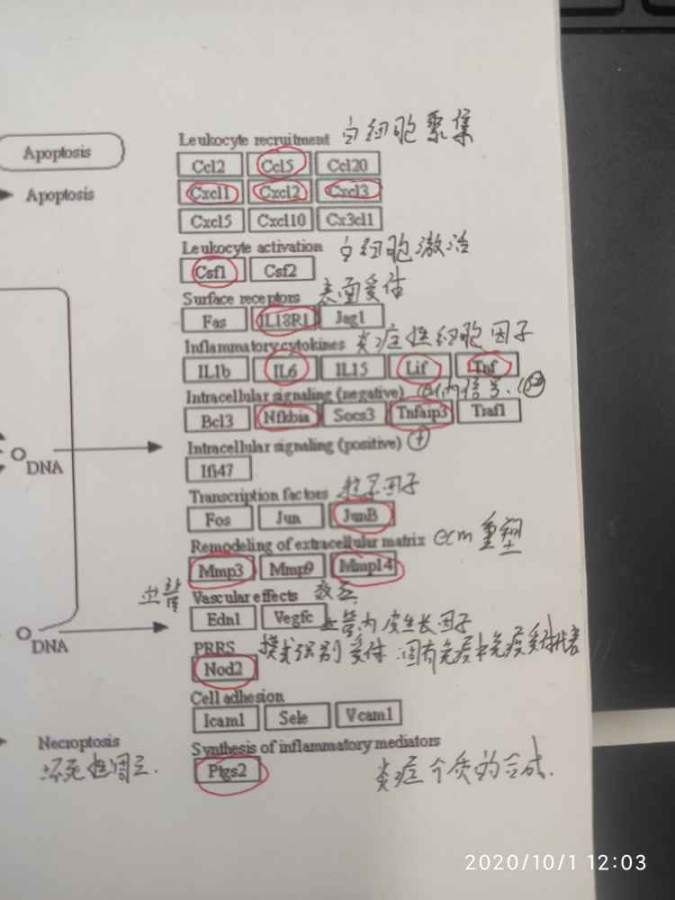 Leukocyte recruitment 白细胞聚集
Apoptosis
Ccl2 Ccl5 Ccl20
Apoptosis
Cxcl1 Cxcl2 Cxcl3
Cxcl5 Cxcl10 Cx3cl1
Leukocyte activation 白细胞激活
Csf1 Csf2
Surface receptors 表面受体
Fas IL18R1 Jag1
Inflammatory cytokines 炎症性细胞因子
IL1b IL6 IL15 Lif Tnf
Intracellular signaling (negative) 胞内信号
Bcl3 Nfkbia Socs3 Tnfaip3 Traf1
Intracellular signaling (positive) +
DNA
Ifi47
Transcription factors 转录因子
Fos Jun JunB
Remodeling of extracellular matrix ecm 重塑
Mmp3 Mmp9 Mmp14
血管 Vascular effects 效应
Edn1 Vegfc 血管内皮生长因子
DNA
PRRS 模式识别受体 固有免疫中免疫受体代表
Nod2
Cell adhesion
Icam1 Sele Vcam1
Necroptosis
Synthesis of inflammatory mediators
坏死性凋亡.
Ptgs2 炎症介质的合成.
2020/10/1 12:03